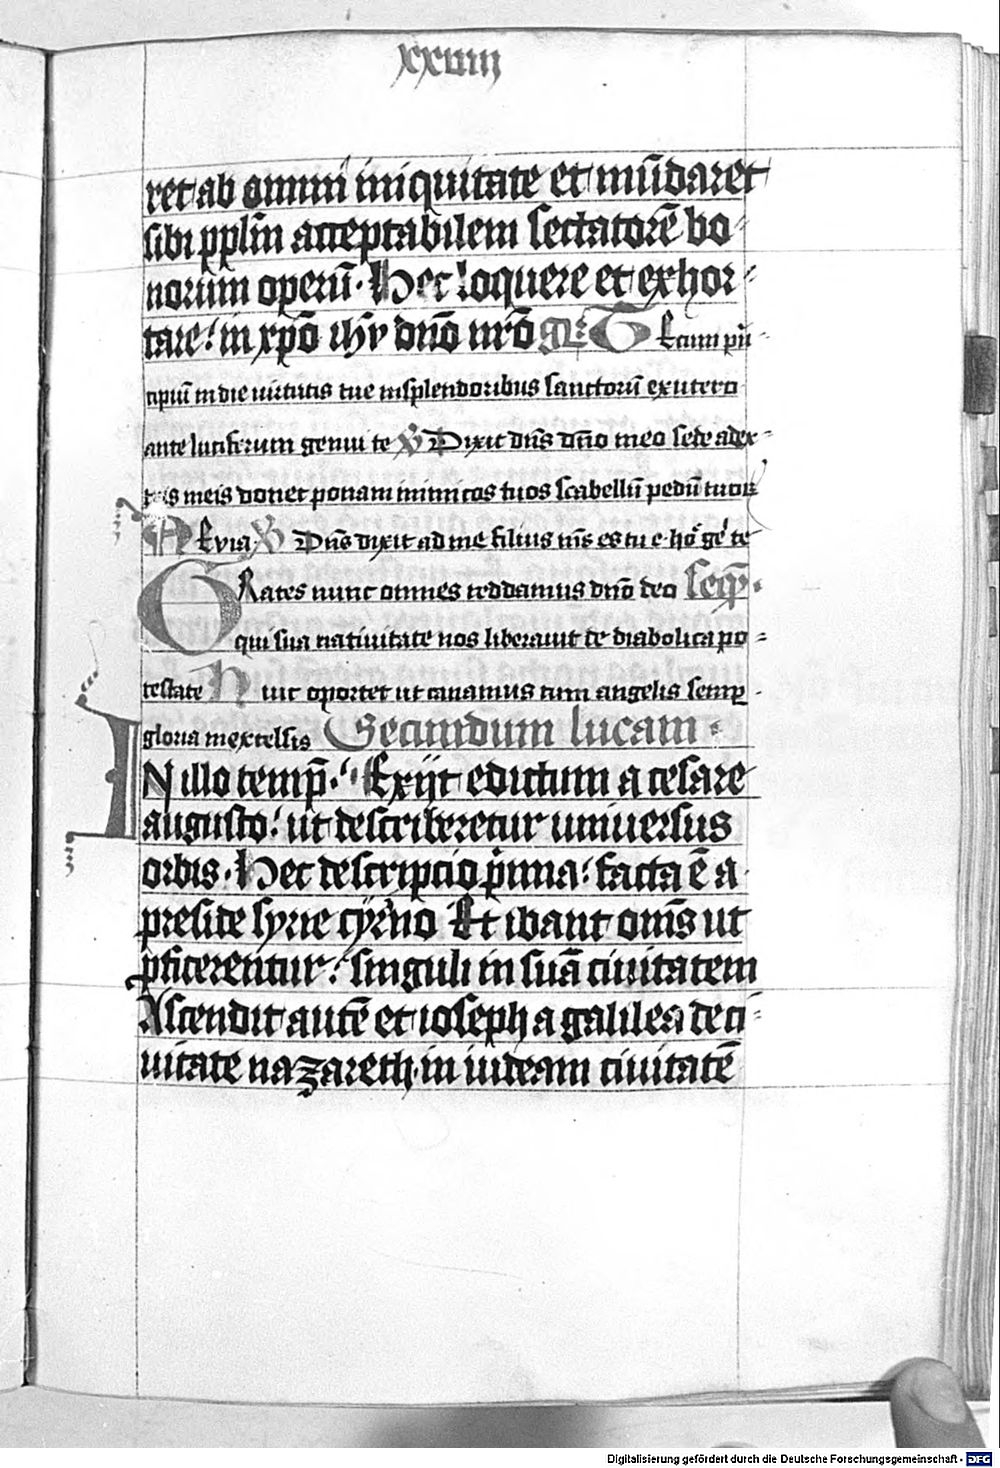 xxiiii
ret ab omni iniquitate et mūdaret
sibi pplm̄ acceptabilem sectatorē bo-
norum operū. Hec loquere et exhor-
tare: in xp̄o ihū dn̄o nr̄o gr̄ Tecum pn̄-
cipiū in die uirtutis tue in splendoribus sanctorū ex utero
ante luciferum genui te V Dixit dn̄s dn̄o meo sede a dex-
tris meis donec ponam inimicos tuos scabellū pedū tuoꝝ
Alevia. V Dn̄s dixit ad me filius m̄s es tu e. hō ge te
Grates nunc omnes reddamus dn̄o deo seqͣ.
qui sua natiuitate nos liberauit de diabolica po-
testate Huic oportet ut canamus cum angelis semꝑ
gloria in excelsis Secundum lucam
IN illo temp̄. Exijt edictum a cesare
augusto: ut describeretur uniuersus
orbis. Hec descripcio pͥma: facta ē a
preside syrie cyrino Et ibant om̄s ut
ꝓficerentur: singuli in suā ciuitatem
Ascendit autē et ioseph a galilea de ci-
uitate nazareth. in iudeam ciuitatē
Digitalisierung gefördert durch die Deutsche Forschungsgemeinschaft - DFG